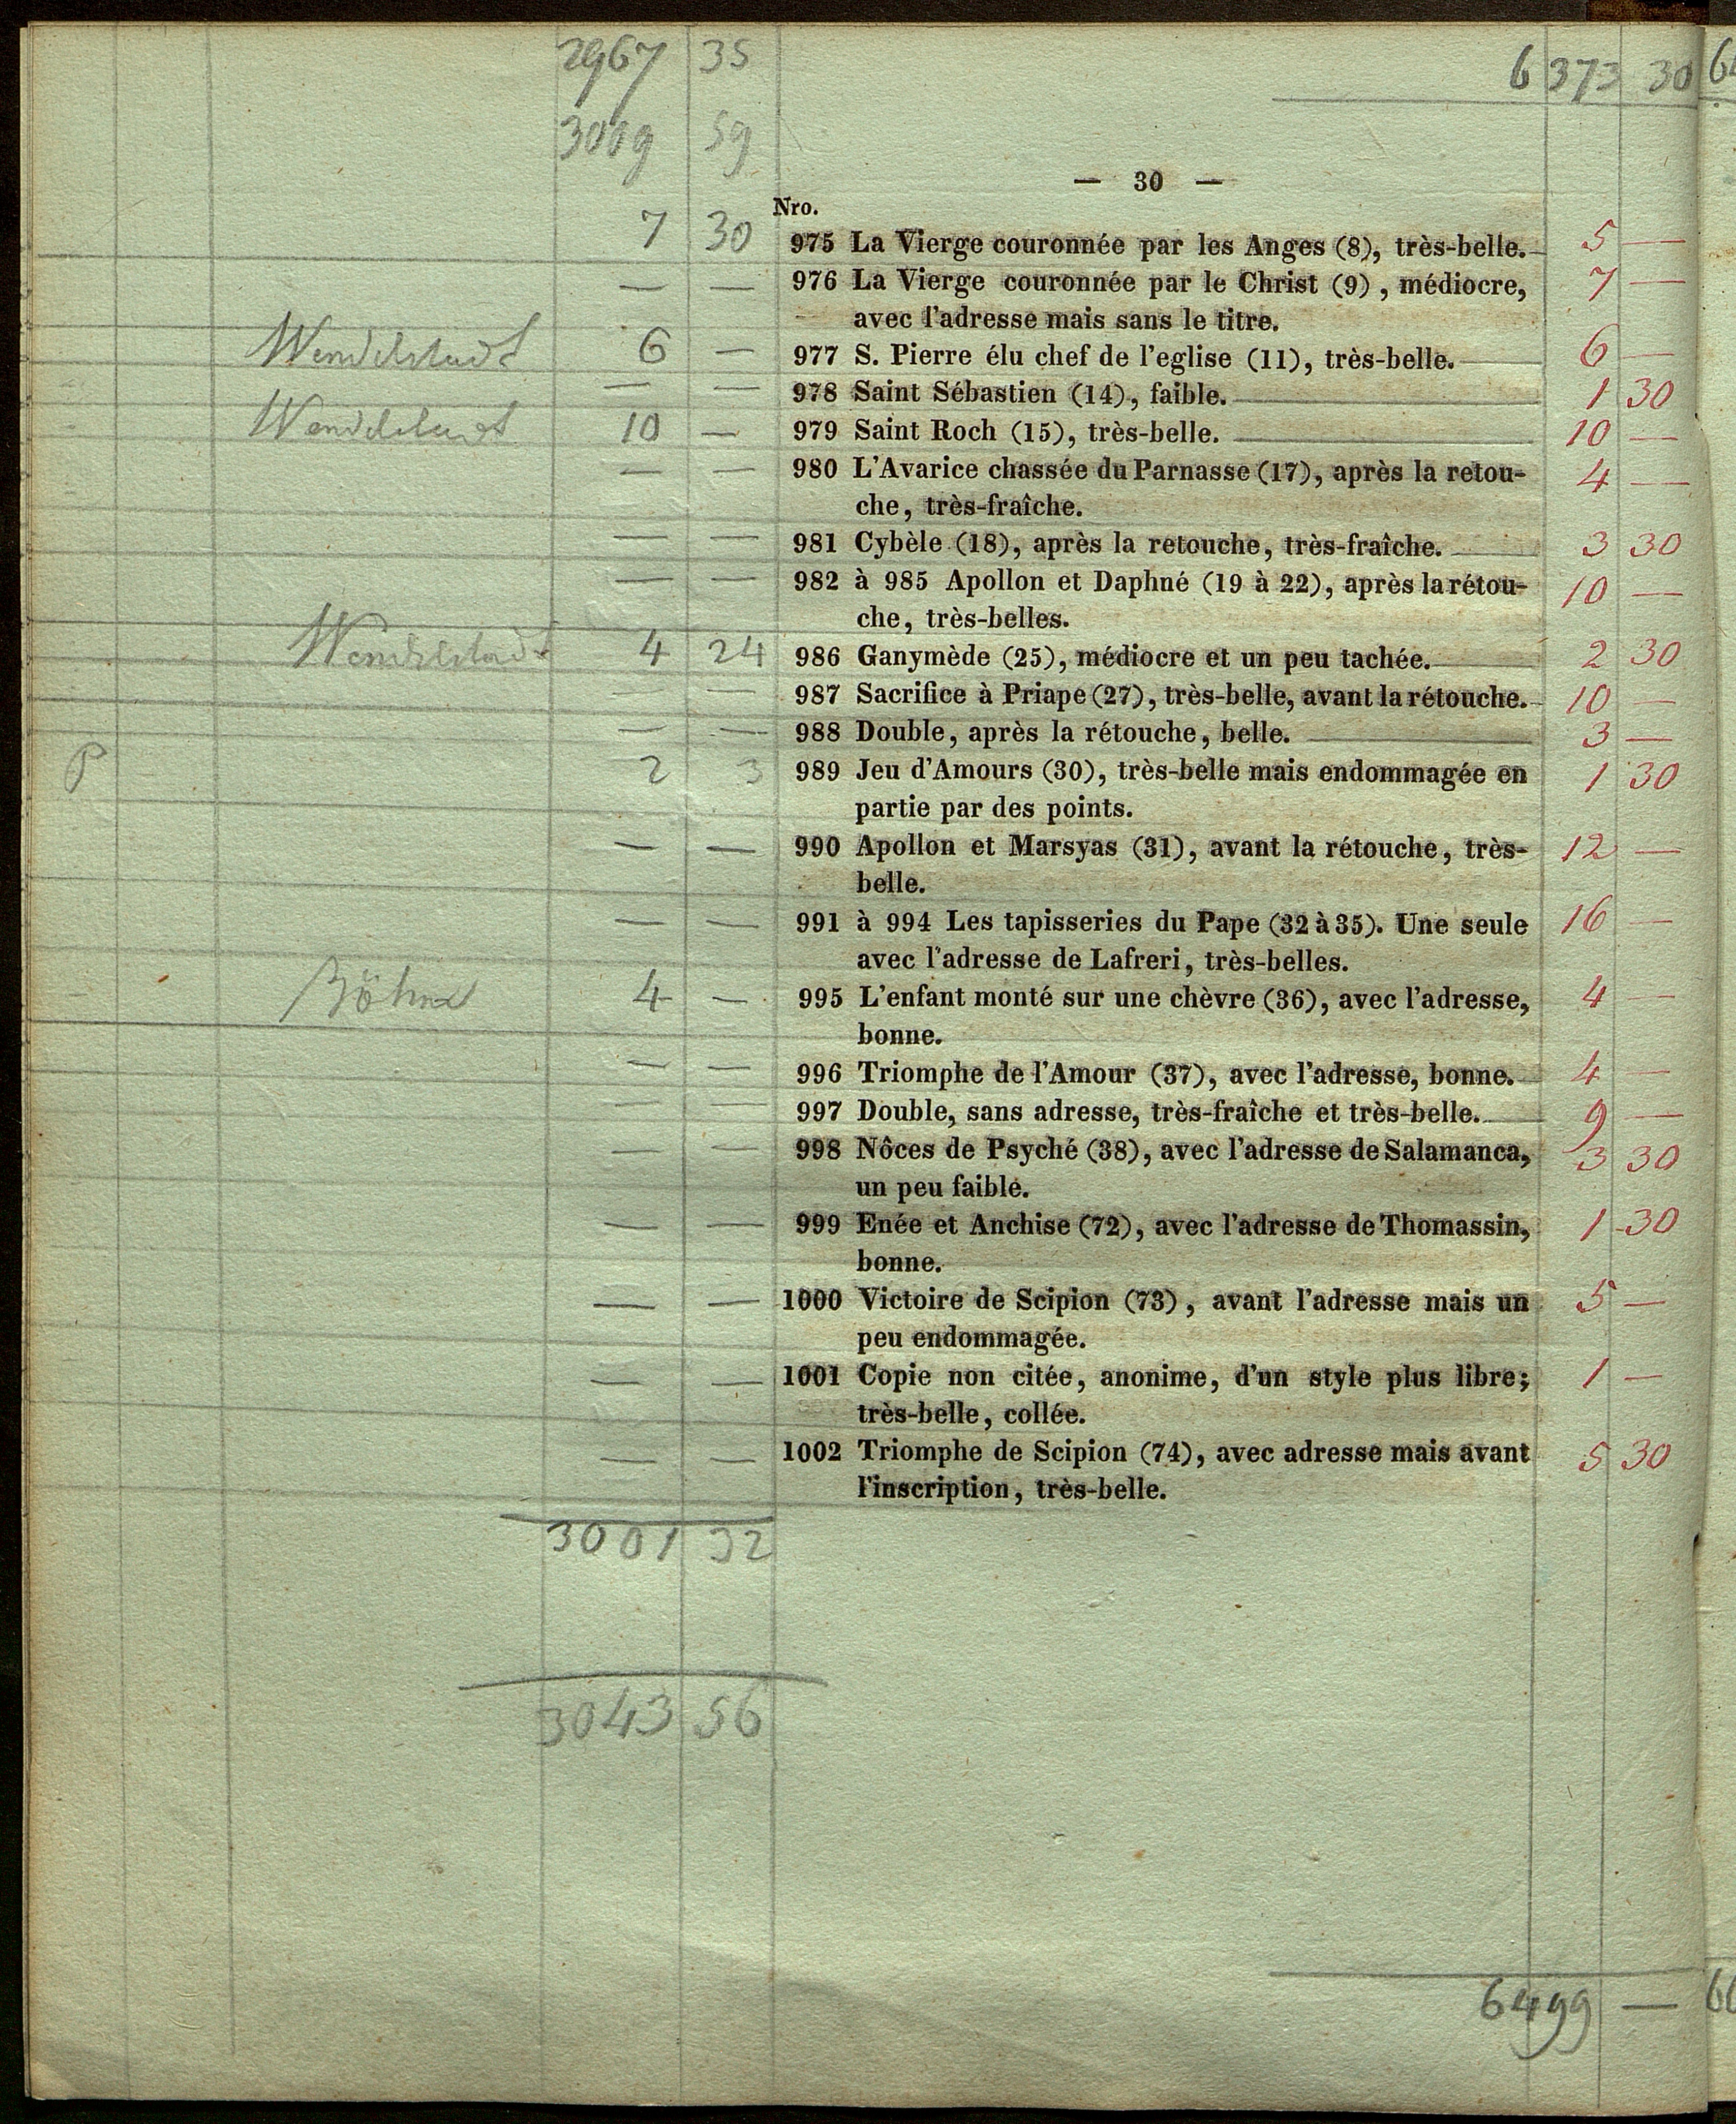 2967 35 6 373 30
3009 59
— 30 —
Nro.
7 30 975 La Vierge couronnée par les Anges (8), très-belle. 5 —
— — 976 La Vierge couronnée par le Christ (9), médiocre, 7 —
avec l'adresse mais sans le titre.
Wendelstadt 6 — 977 S. Pierre élu chef de l'eglise (11), très-belle. 6 —
— — 978 Saint Sébastien (14), faible. 1 30
Wendelstadt 10 — 979 Saint Roch (15), très-belle. 10 —
— — 980 L'Avarice chassée du Parnasse (17), après la retou- 4 —
che, très-fraîche.
— — 981 Cybèle (18), après la retouche, très-fraîche. 3 30
— — 982 à 985 Apollon et Daphné (19 à 22), après la rétou- 10 —
che, très-belles.
Wendelstadt 4 24 986 Ganymède (25), médiocre et un peu tachée. 2 30
— — 987 Sacrifice à Priape (27), très-belle, avant la rétouche. 10 —
— — 988 Double, après la rétouche, belle. 3 —
P 2 3 989 Jeu d'Amours (30), très-belle mais endommagée en 1 30
partie par des points.
— — 990 Apollon et Marsyas (31), avant la rétouche, très- 12 —
belle.
— — 991 à 994 Les tapisseries du Pape (32 à 35). Une seule 16 —
avec l'adresse de Lafreri, très-belles.
Böhm 4 — 995 L'enfant monté sur une chèvre (36), avec l'adresse, 4 —
bonne.
— — 996 Triomphe de l'Amour (37), avec l'adresse, bonne. 4 —
— — 997 Double, sans adresse, très-fraîche et très-belle. 9 —
— — 998 Nôces de Psyché (38), avec l'adresse de Salamanca, 3 30
un peu faible.
— — 999 Enée et Anchise (72), avec l'adresse de Thomassin, 1 30
bonne.
— — 1000 Victoire de Scipion (73), avant l'adresse mais un 5 —
peu endommagée.
— — 1001 Copie non citée, anonime, d'un style plus libre; 1 —
très-belle, collée.
— — 1002 Triomphe de Scipion (74), avec adresse mais avant 5 30
l'inscription, très-belle.
3001 32
3043 56
6499 —